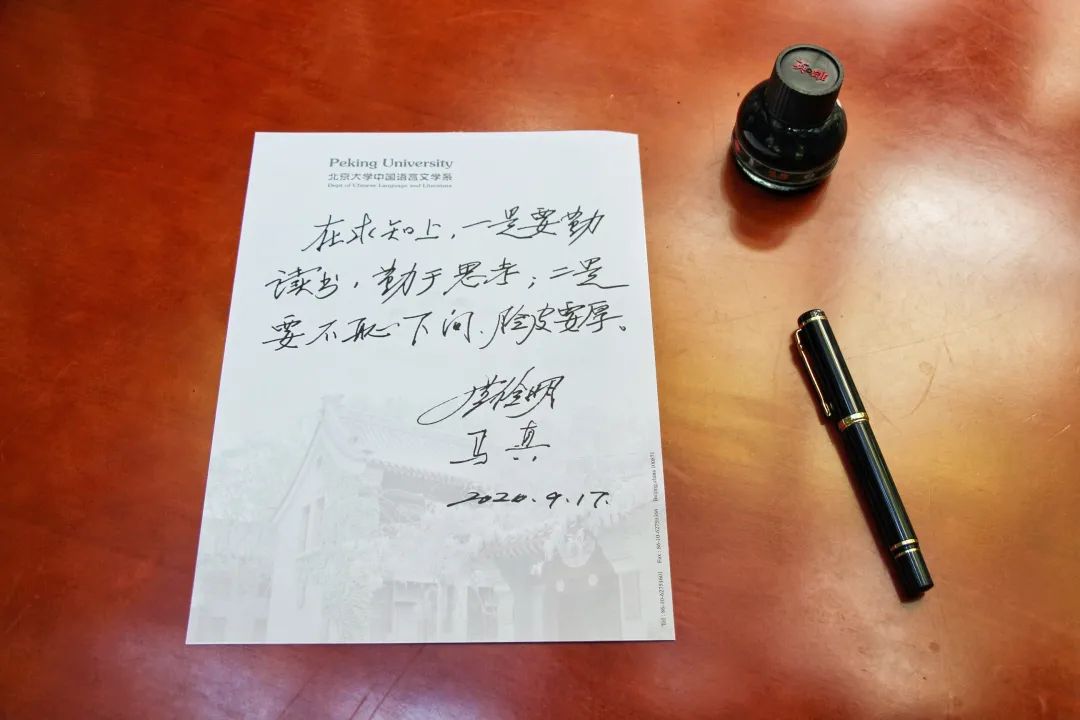 英雄
Peking University
北京大学中国语言文学系
Dept of Chinese Language and Literature
在求知上，一是要勤
读书，勤于思考；二是
要不耻下问、脸皮要厚。
陆俭明
马真
2020.9.17.
Tel : 86-10-62751601 Fax : 86-10-62751166 Beijing, china 100871